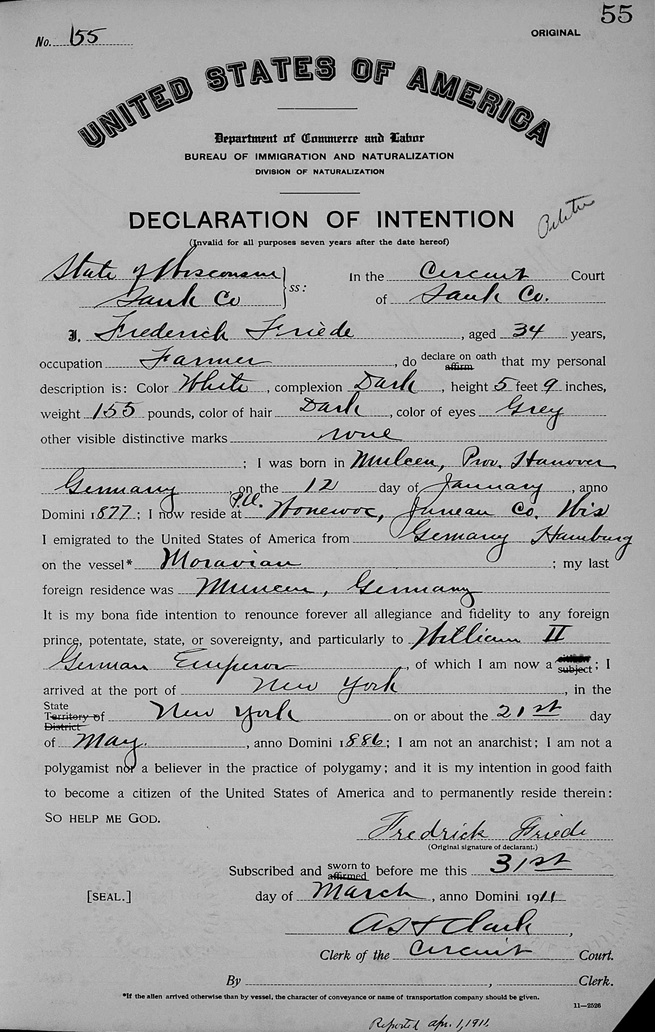 55
No. 155
ORIGINAL
UNITED STATES OF AMERICA
Department of Commerce and Labor
BUREAU OF IMMIGRATION AND NATURALIZATION
DIVISION OF NATURALIZATION
DECLARATION OF INTENTION
(Invalid for all purposes seven years after the date hereof)
State of Wisconsin
Sauk Co
ss:
In the Circuit Court
of Sauk Co.
I, Frederick Friede, aged 34 years,
occupation Farmer, do declare on oath affirm that my personal
description is: Color White, complexion Dark, height 5 feet 9 inches,
weight 155 pounds, color of hair Dark, color of eyes Grey
other visible distinctive marks none
; I was born in Prov. Hanover
Germany, on the 12 day of January, anno
Domini 1877; I now reside at P.O. Wonewoc, Juneau Co. Wis
I emigrated to the United States of America from Gemany Hamburg
on the vessel* Moravian; my last
foreign residence was Germany
It is my bona fide intention to renounce forever all allegiance and fidelity to any foreign
prince, potentate, state, or sovereignty, and particularly to William II
German Emperor, of which I am now a subject; I
arrived at the port of New York, in the
State Territory District of New York on or about the 21st day
of May., anno Domini 1886; I am not an anarchist; I am not a
polygamist nor a believer in the practice of polygamy; and it is my intention in good faith
to become a citizen of the United States of America and to permanently reside therein:
SO HELP ME GOD.
Fredrick Friede
(Original signature of declarant.)
Subscribed and sworn to affirmed before me this 31st
[SEAL.]
day of March, anno Domini 1911
Clark,
Clerk of the Circuit Court.
By , Clerk.
*If the alien arrived otherwise than by vessel, the character of conveyance or name of transportation company should be given.
11-2526
Reported Apr. 1, 1911